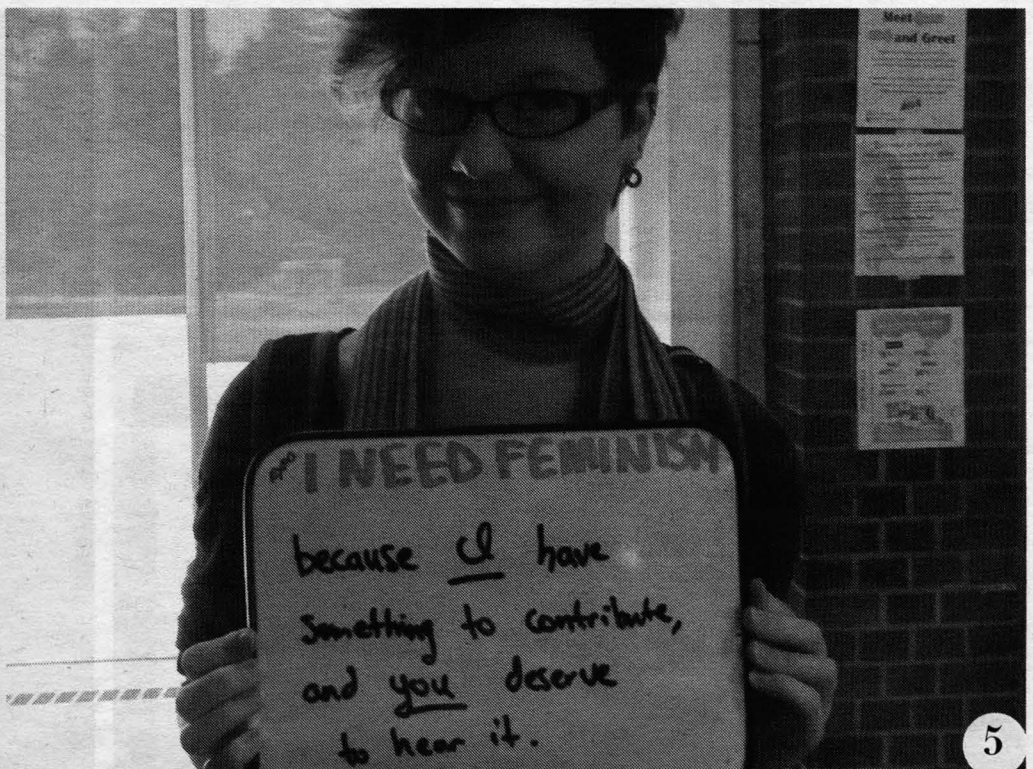 Meet
and Greet
I NEED FEMINISM
because I have
something to contribute,
and you deserve
to hear it.
5